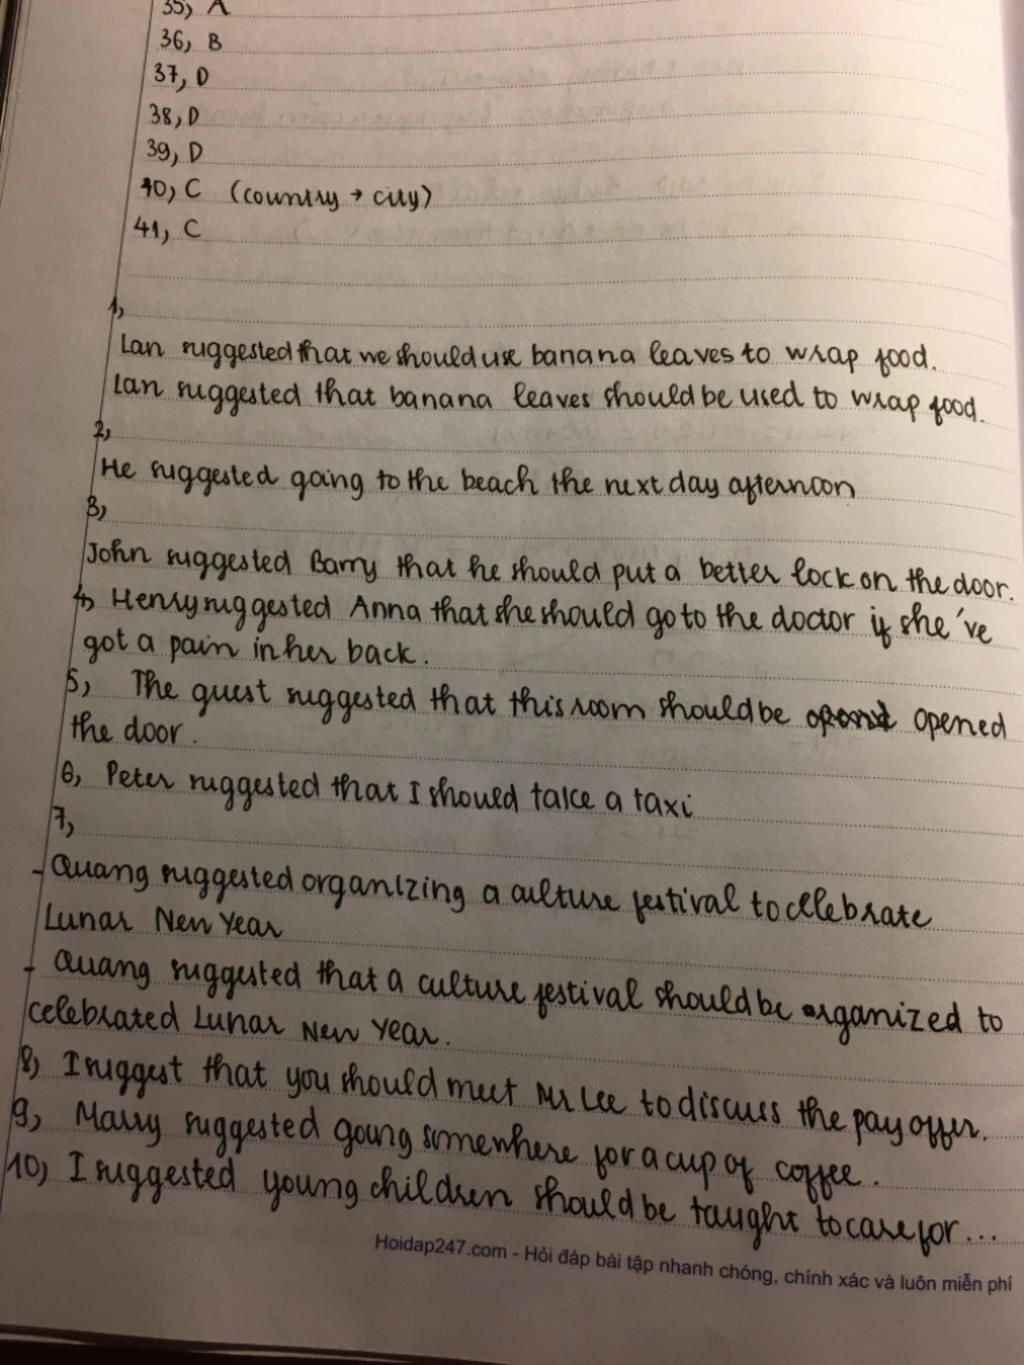 35, A
36, B
37, D
38, D
39, D
40, C (country → city)
41, C
1,
Lan suggested that we should use banana leaves to wrap food.
Lan suggested that banana leaves should be used to wrap food.
2,
He suggested going to the beach the next day afternoon
3,
John suggested Barry that he should put a better lock on the door.
4, Henry suggested Anna that she should go to the doctor if she've
got a pain in her back.
5, The guest suggested that this room should be opened
the door.
6, Peter suggested that I should take a taxi
7,
- Quang suggested organizing a culture festival to celebrate
Lunar New Year
- Quang suggested that a culture festival should be organized to
celebrated Lunar New Year.
8, I suggest that you should meet Mr Lee to discuss the pay offer.
9, Marry suggested going somewhere for a cup of coffee.
10, I suggested young children should be taught to care for...
Hoidap247.com - Hỏi đáp bài tập nhanh chóng, chính xác và luôn miễn phí